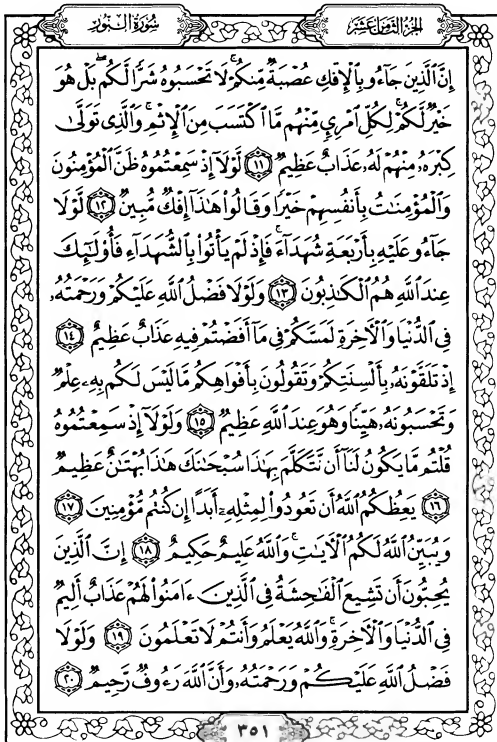 الجزء الثامن عشر سورة النور
إِنَّ ٱلَّذِينَ جَآءُو بِٱلْإِفْكِ عُصْبَةٌ مِّنكُمْ ۚ لَا تَحْسَبُوهُ شَرًّا لَّكُم ۖ بَلْ هُوَ
خَيْرٌ لَّكُمْ ۚ لِكُلِّ ٱمْرِئٍ مِّنْهُم مَّا ٱكْتَسَبَ مِنَ ٱلْإِثْمِ ۚ وَٱلَّذِى تَوَلَّىٰ
كِبْرَهُۥ مِنْهُمْ لَهُۥ عَذَابٌ عَظِيمٌ ١١ لَّوْلَآ إِذْ سَمِعْتُمُوهُ ظَنَّ ٱلْمُؤْمِنُونَ
وَٱلْمُؤْمِنَٰتُ بِأَنفُسِهِمْ خَيْرًا وَقَالُوا۟ هَٰذَآ إِفْكٌ مُّبِينٌ ١٢ لَّوْلَا
جَآءُو عَلَيْهِ بِأَرْبَعَةِ شُهَدَآءَ ۚ فَإِذْ لَمْ يَأْتُوا۟ بِٱلشُّهَدَآءِ فَأُو۟لَٰٓئِكَ
عِندَ ٱللَّهِ هُمُ ٱلْكَٰذِبُونَ ١٣ وَلَوْلَا فَضْلُ ٱللَّهِ عَلَيْكُمْ وَرَحْمَتُهُۥ
فِى ٱلدُّنْيَا وَٱلْءَاخِرَةِ لَمَسَّكُمْ فِى مَآ أَفَضْتُمْ فِيهِ عَذَابٌ عَظِيمٌ ١٤
إِذْ تَلَقَّوْنَهُۥ بِأَلْسِنَتِكُمْ وَتَقُولُونَ بِأَفْوَاهِكُم مَّا لَيْسَ لَكُم بِهِۦ عِلْمٌ
وَتَحْسَبُونَهُۥ هَيِّنًا وَهُوَ عِندَ ٱللَّهِ عَظِيمٌ ١٥ وَلَوْلَآ إِذْ سَمِعْتُمُوهُ
قُلْتُم مَّا يَكُونُ لَنَآ أَن نَّتَكَلَّمَ بِهَٰذَا سُبْحَٰنَكَ هَٰذَا بُهْتَٰنٌ عَظِيمٌ
١٦ يَعِظُكُمُ ٱللَّهُ أَن تَعُودُوا۟ لِمِثْلِهِۦٓ أَبَدًا إِن كُنتُم مُّؤْمِنِينَ ١٧
وَيُبَيِّنُ ٱللَّهُ لَكُمُ ٱلْءَايَٰتِ ۚ وَٱللَّهُ عَلِيمٌ حَكِيمٌ ١٨ إِنَّ ٱلَّذِينَ
يُحِبُّونَ أَن تَشِيعَ ٱلْفَٰحِشَةُ فِى ٱلَّذِينَ ءَامَنُوا۟ لَهُمْ عَذَابٌ أَلِيمٌ
فِى ٱلدُّنْيَا وَٱلْءَاخِرَةِ ۚ وَٱللَّهُ يَعْلَمُ وَأَنتُمْ لَا تَعْلَمُونَ ١٩ وَلَوْلَا
فَضْلُ ٱللَّهِ عَلَيْكُمْ وَرَحْمَتُهُۥ وَأَنَّ ٱللَّهَ رَءُوفٌ رَّحِيمٌ ٢٠
٣٥١